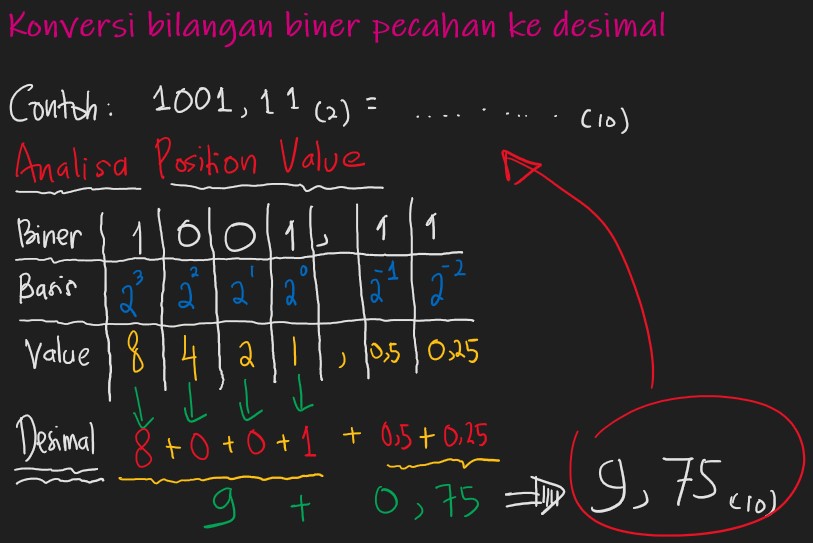 Konversi bilangan biner pecahan ke desimal
Contoh: 1001,11 (2) = .... . ... . (10)
Analisa Position Value
Biner 1 0 0 1 , 1 1
Basis 2³ 2² 2¹ 2⁰ 2⁻¹ 2⁻²
Value 8 4 2 1 , 0,5 0,25
Desimal 8 + 0 + 0 + 1 + 0,5 + 0,25
9 + 0,75 ⇒ 9,75 (10)